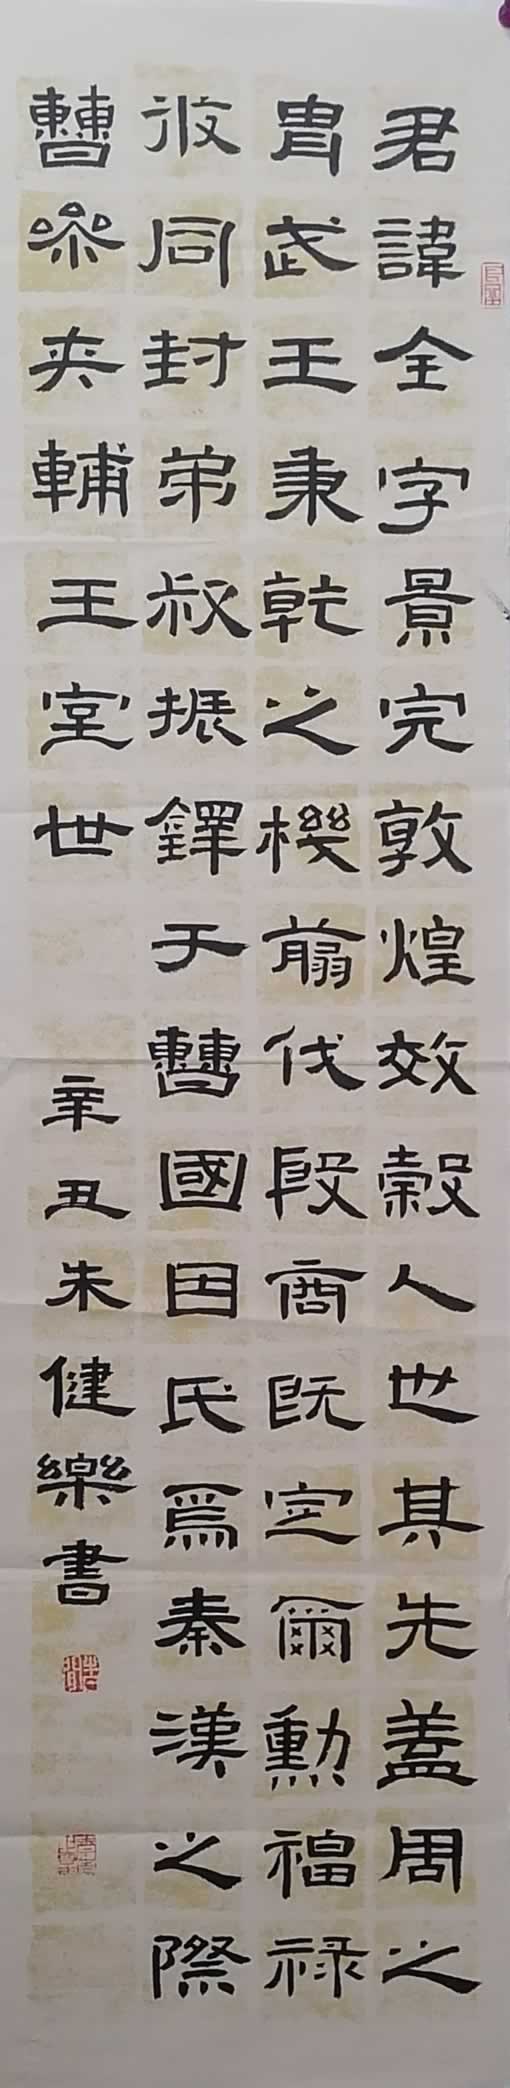 君諱全字景完敦煌效穀人也其先蓋周之
胄武王秉乾之機翦伐殷商既定爾勳福祿
攸同封弟叔振鐸于曹國因氏焉秦漢之際
曹參夾輔王室世
辛丑朱健樂書